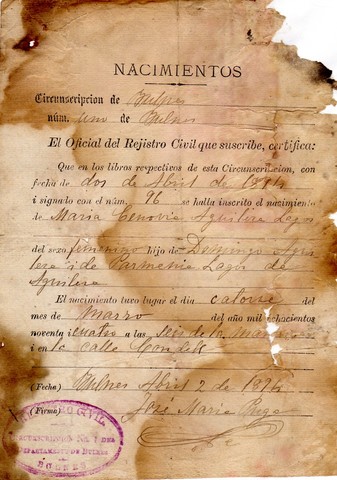 NACIMIENTOS
Circunscripcion de Bulnes
núm. uno de Bulnes
El Oficial del Rejistro Civil que suscribe, certifica:
Que en los libros respectivos de esta Circunscripcion, con
fecha de dos de Abril de 1894
i signado con el núm. 96 se halla inscrito el nacimiento
de Maria Cenovia Aguilera Lagos
del sexo femenino hijo de Domingo Agui
lera i de Parmenia Lagos de
Aguilera
El nacimiento tuvo lugar el dia catorce del
mes de marzo del año mil ochocientos
noventa i cuatro a las seis de la mañana
i en la calle Condell
(Fecha) Bulnes Abril 2 de 1894
(Firma) José Maria
CIVIL
CIRCUNSCRIPCION N.º 1 DEL
DEPARTAMENTO DE BULNES
BULNES